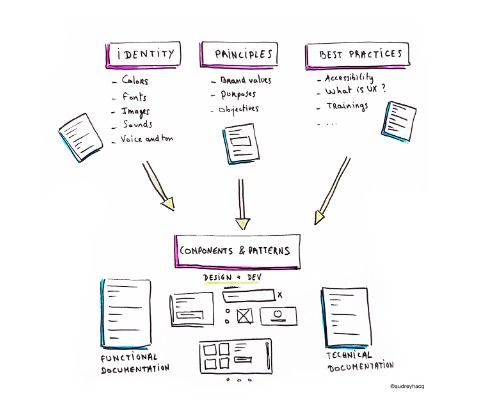 IDENTITY
- Colors
- Fonts
- Images
- Sounds
- Voice and ton
PRINCIPLES
- Brand values
- purposes
- objectives
BEST PRACTICES
- Accessibility
- What is UX ?
- TRainings
- ...
COMPONENTS & PATTERNS
DESIGN + DEV
X
FUNCTIONAL
DOCUMENTATION
TECHNICAL
DOCUMENTATION
©audreyhacq